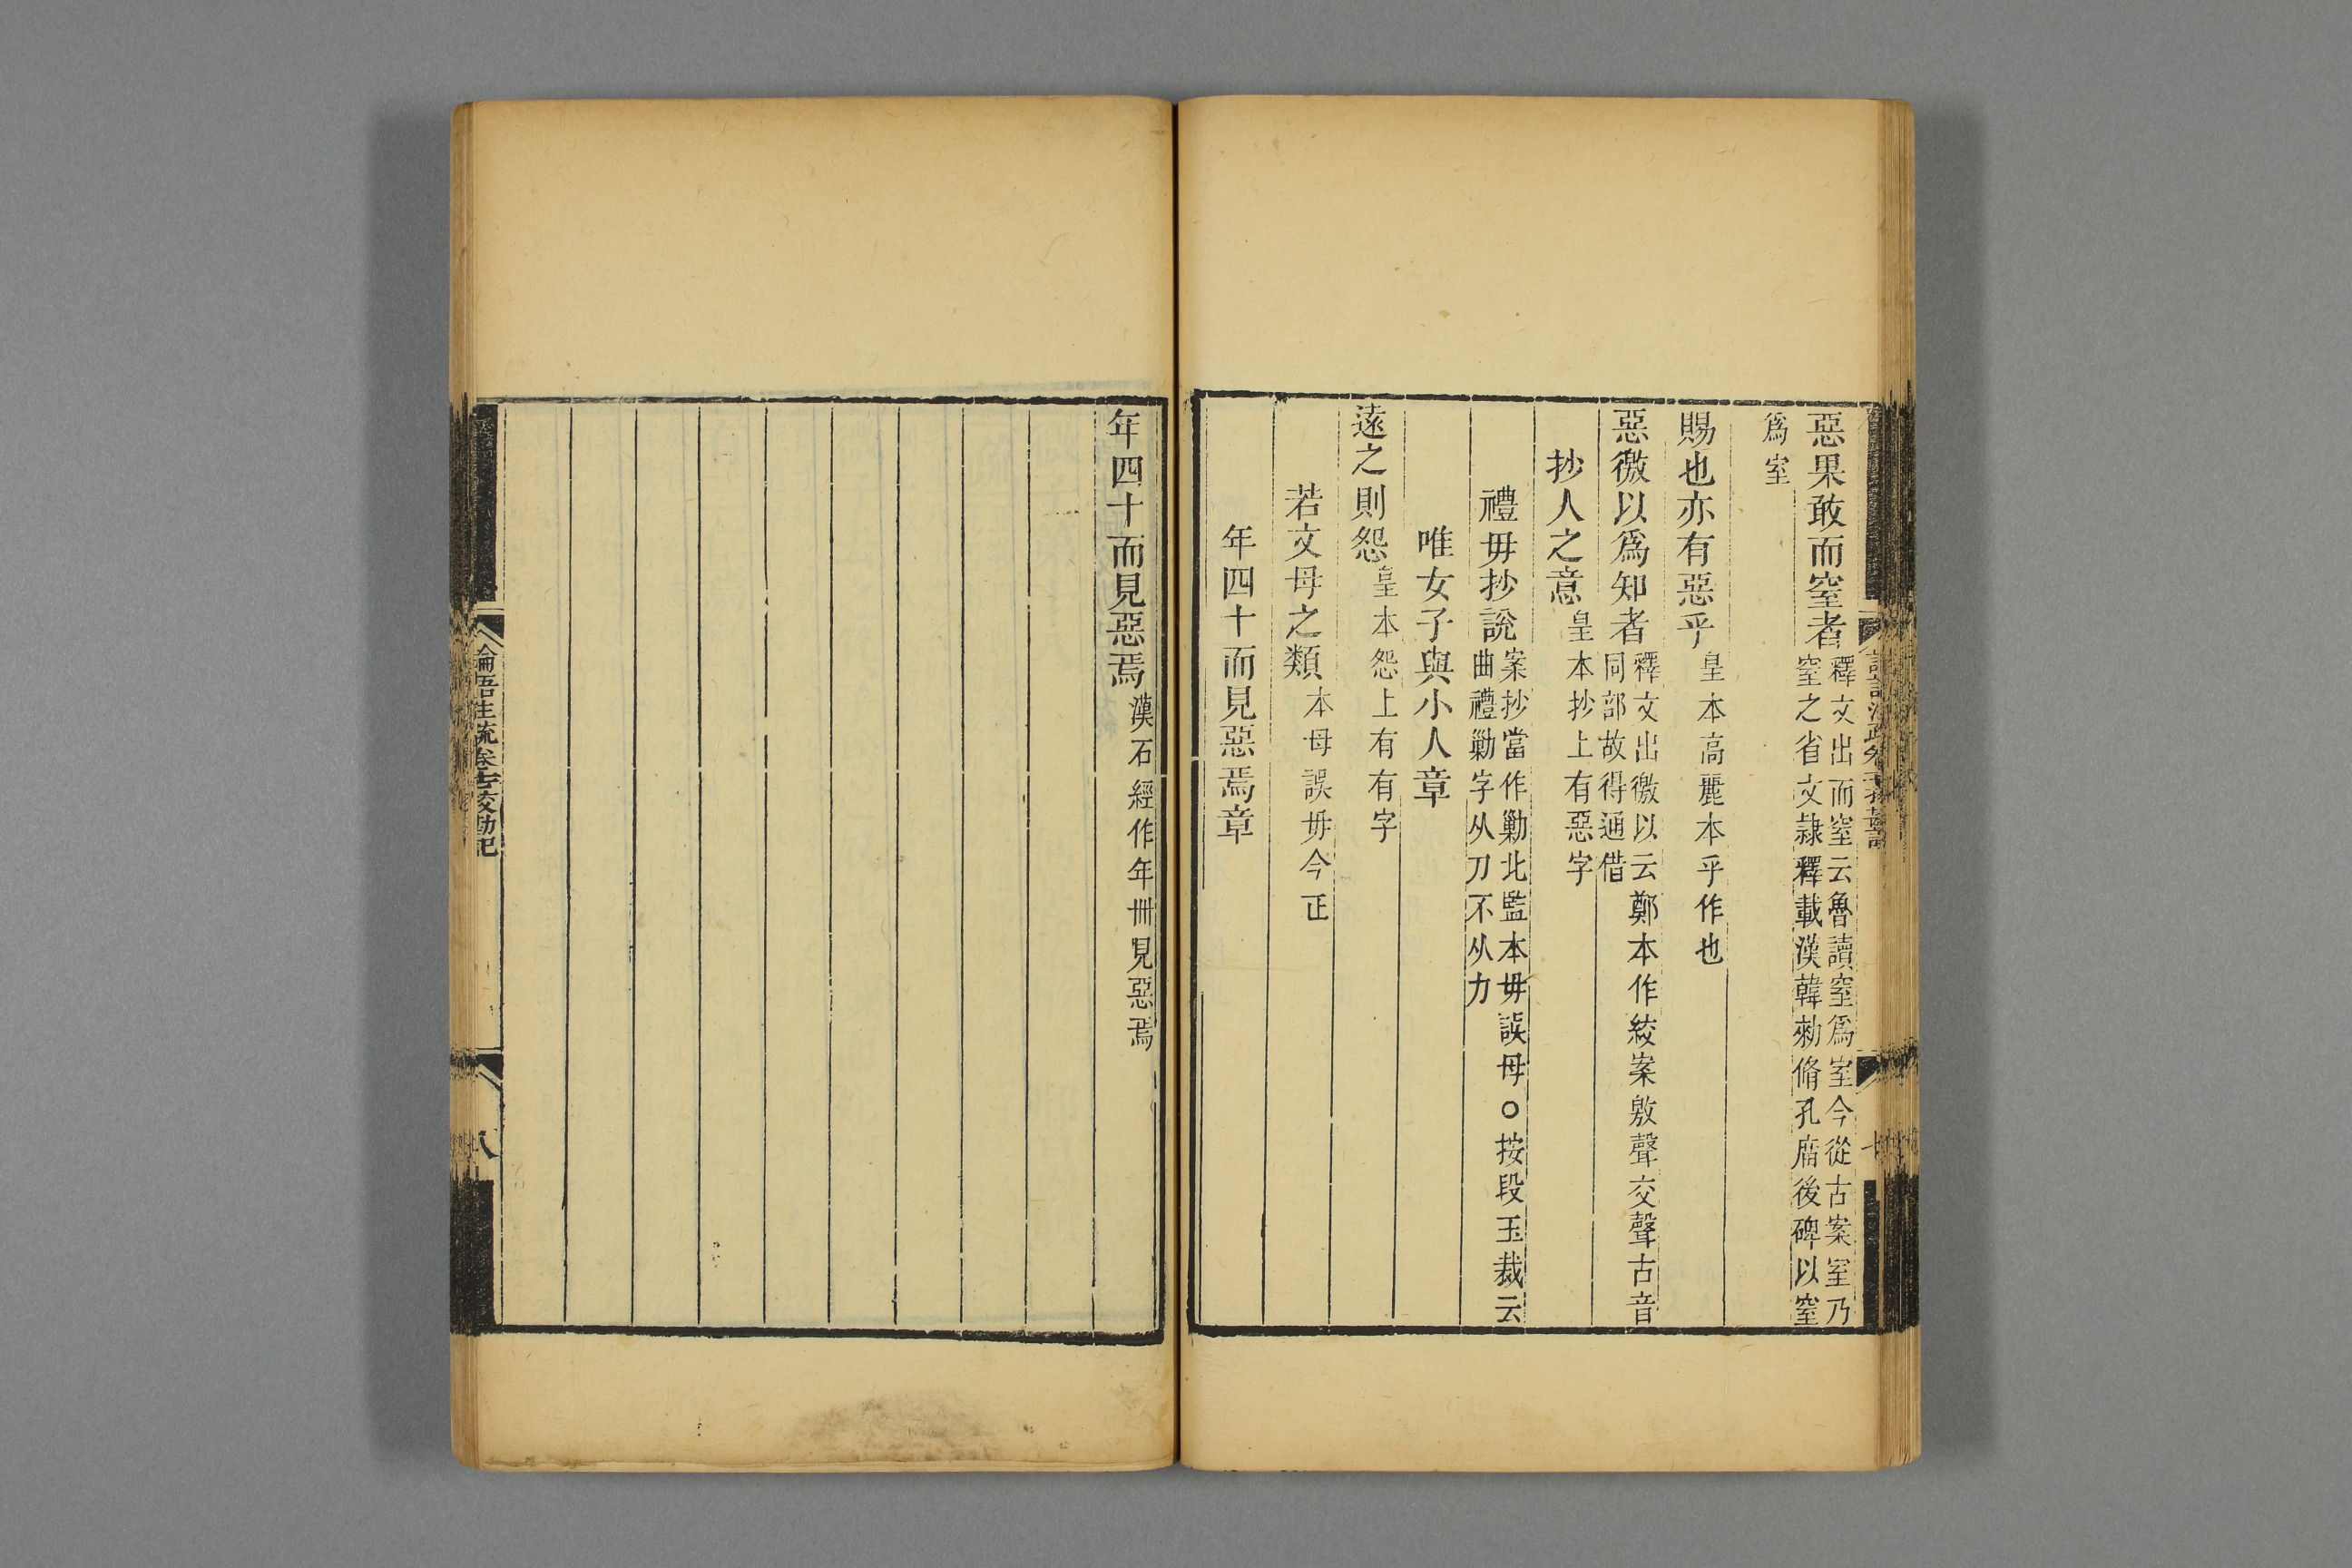 惡果敢而窒者釋文出而窒云魯讀窒爲室今從古案室乃窒之省文隷釋載漢韓勑脩孔庿後碑以窒
爲室
賜也亦有惡乎皇本高麗本乎作也
惡徼以爲知者釋文出徼以云鄭本作絞案敫聲交聲古音同部故得通借
抄人之意皇本抄上有惡字
禮毋抄說案抄當作勦北監本毋誤母○按段玉裁云曲禮勦字从刀不从力
唯女子與小人章
遠之則怨皇本怨上有有字
若文母之類本母誤毋今正
年四十而見惡焉章
年四十而見惡焉漢石經作年卌見惡焉
論語注疏卷十七校勘記
八